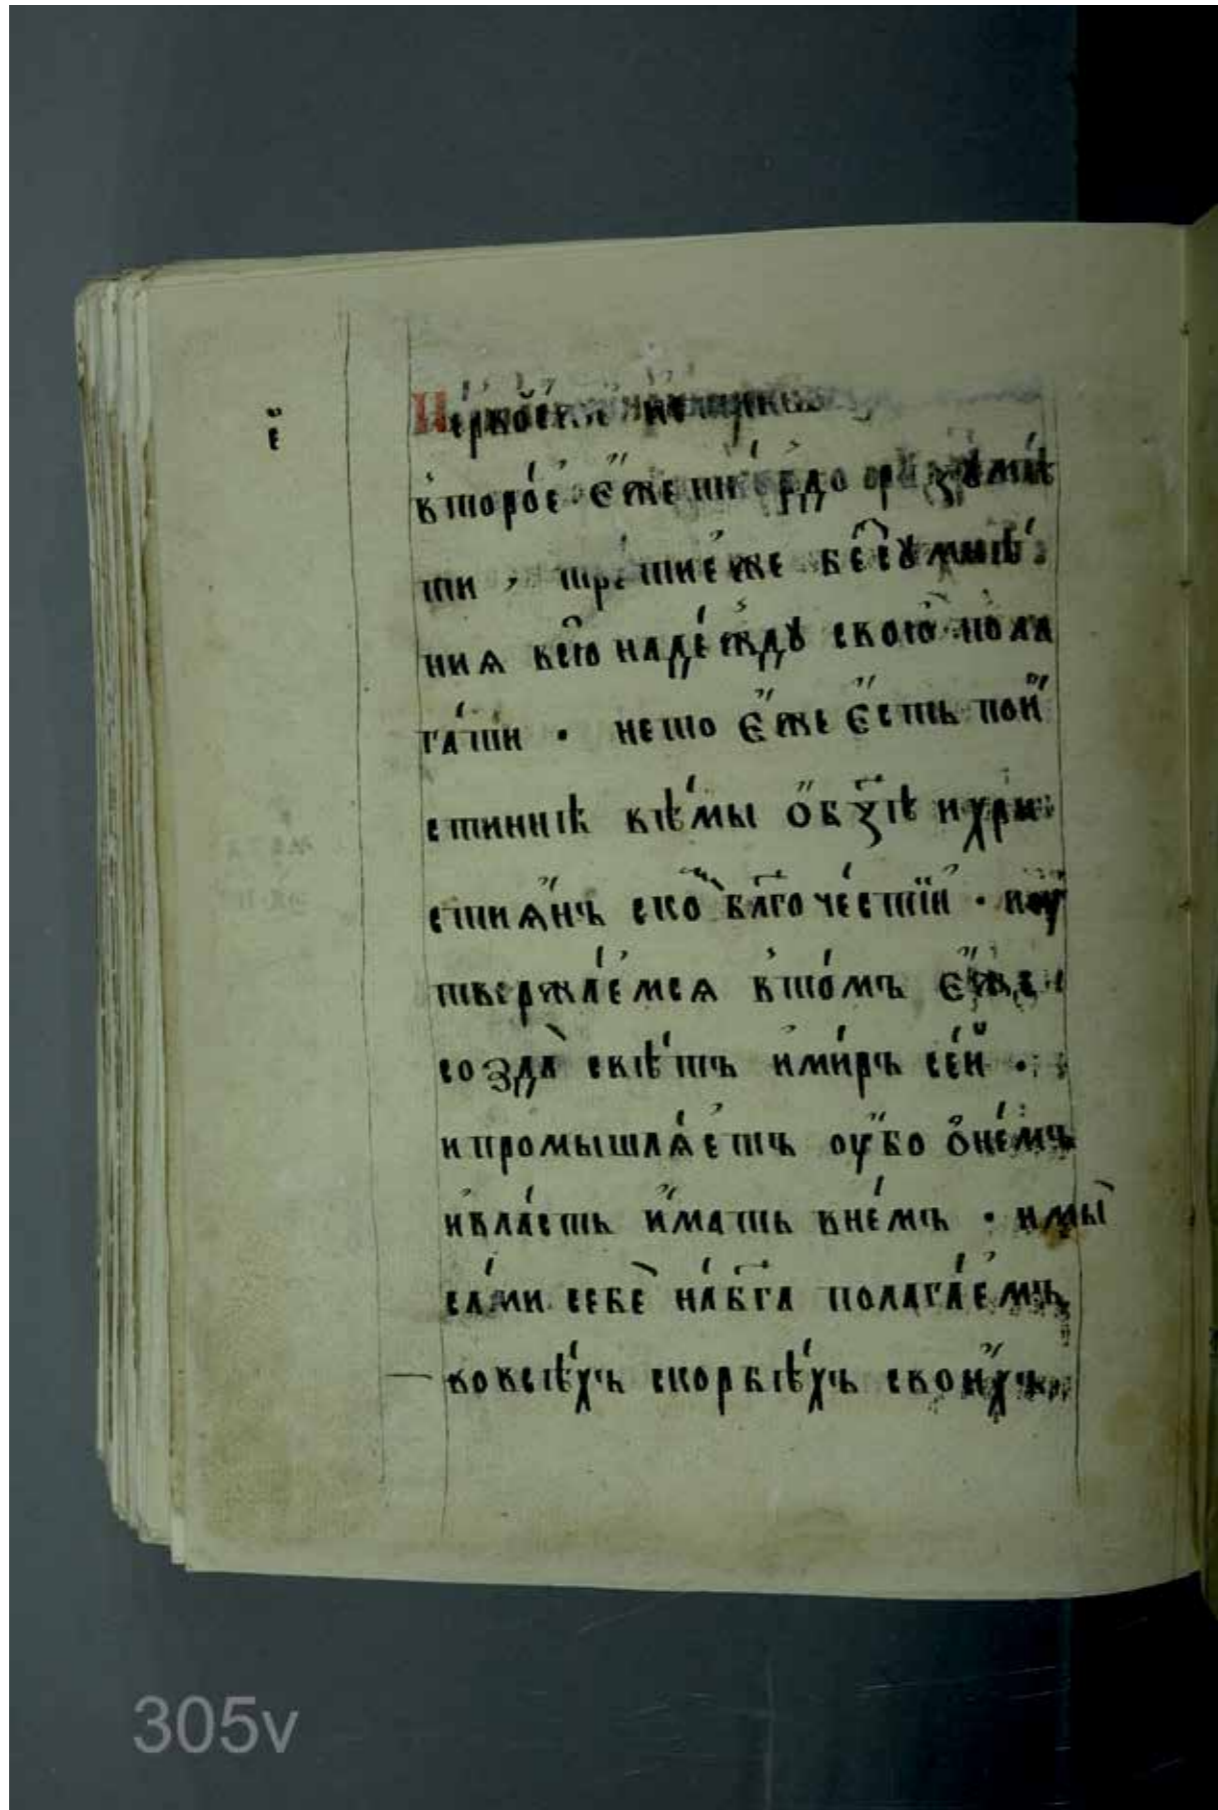 е҃
второ́е є҆́же ни
ти , тре́тиее же
нияⷨ всю̀ наде́жду свою̀ пола
га́ти · не то є҆́же є҆́сть пои́
стиннѣ вѣ́мы ѡ҆ бз҃ѣ и хри
стия́нъ ско благ҃оче́стїи · и оу
твержа́емся в то́мъ є҆́же
созда̀ свѣ́тъ и҆ ми́ръ се́й ·
и промышля́етъ оу҆́бо ѡ҆ не́мъ
и҆ вла́сть и҆́мать в не́мъ · и мы̀
са́ми себѐ на́ бг҃а полага́емъ
во всѣ́хъ скорбѣ́хъ свои́хъ
305v